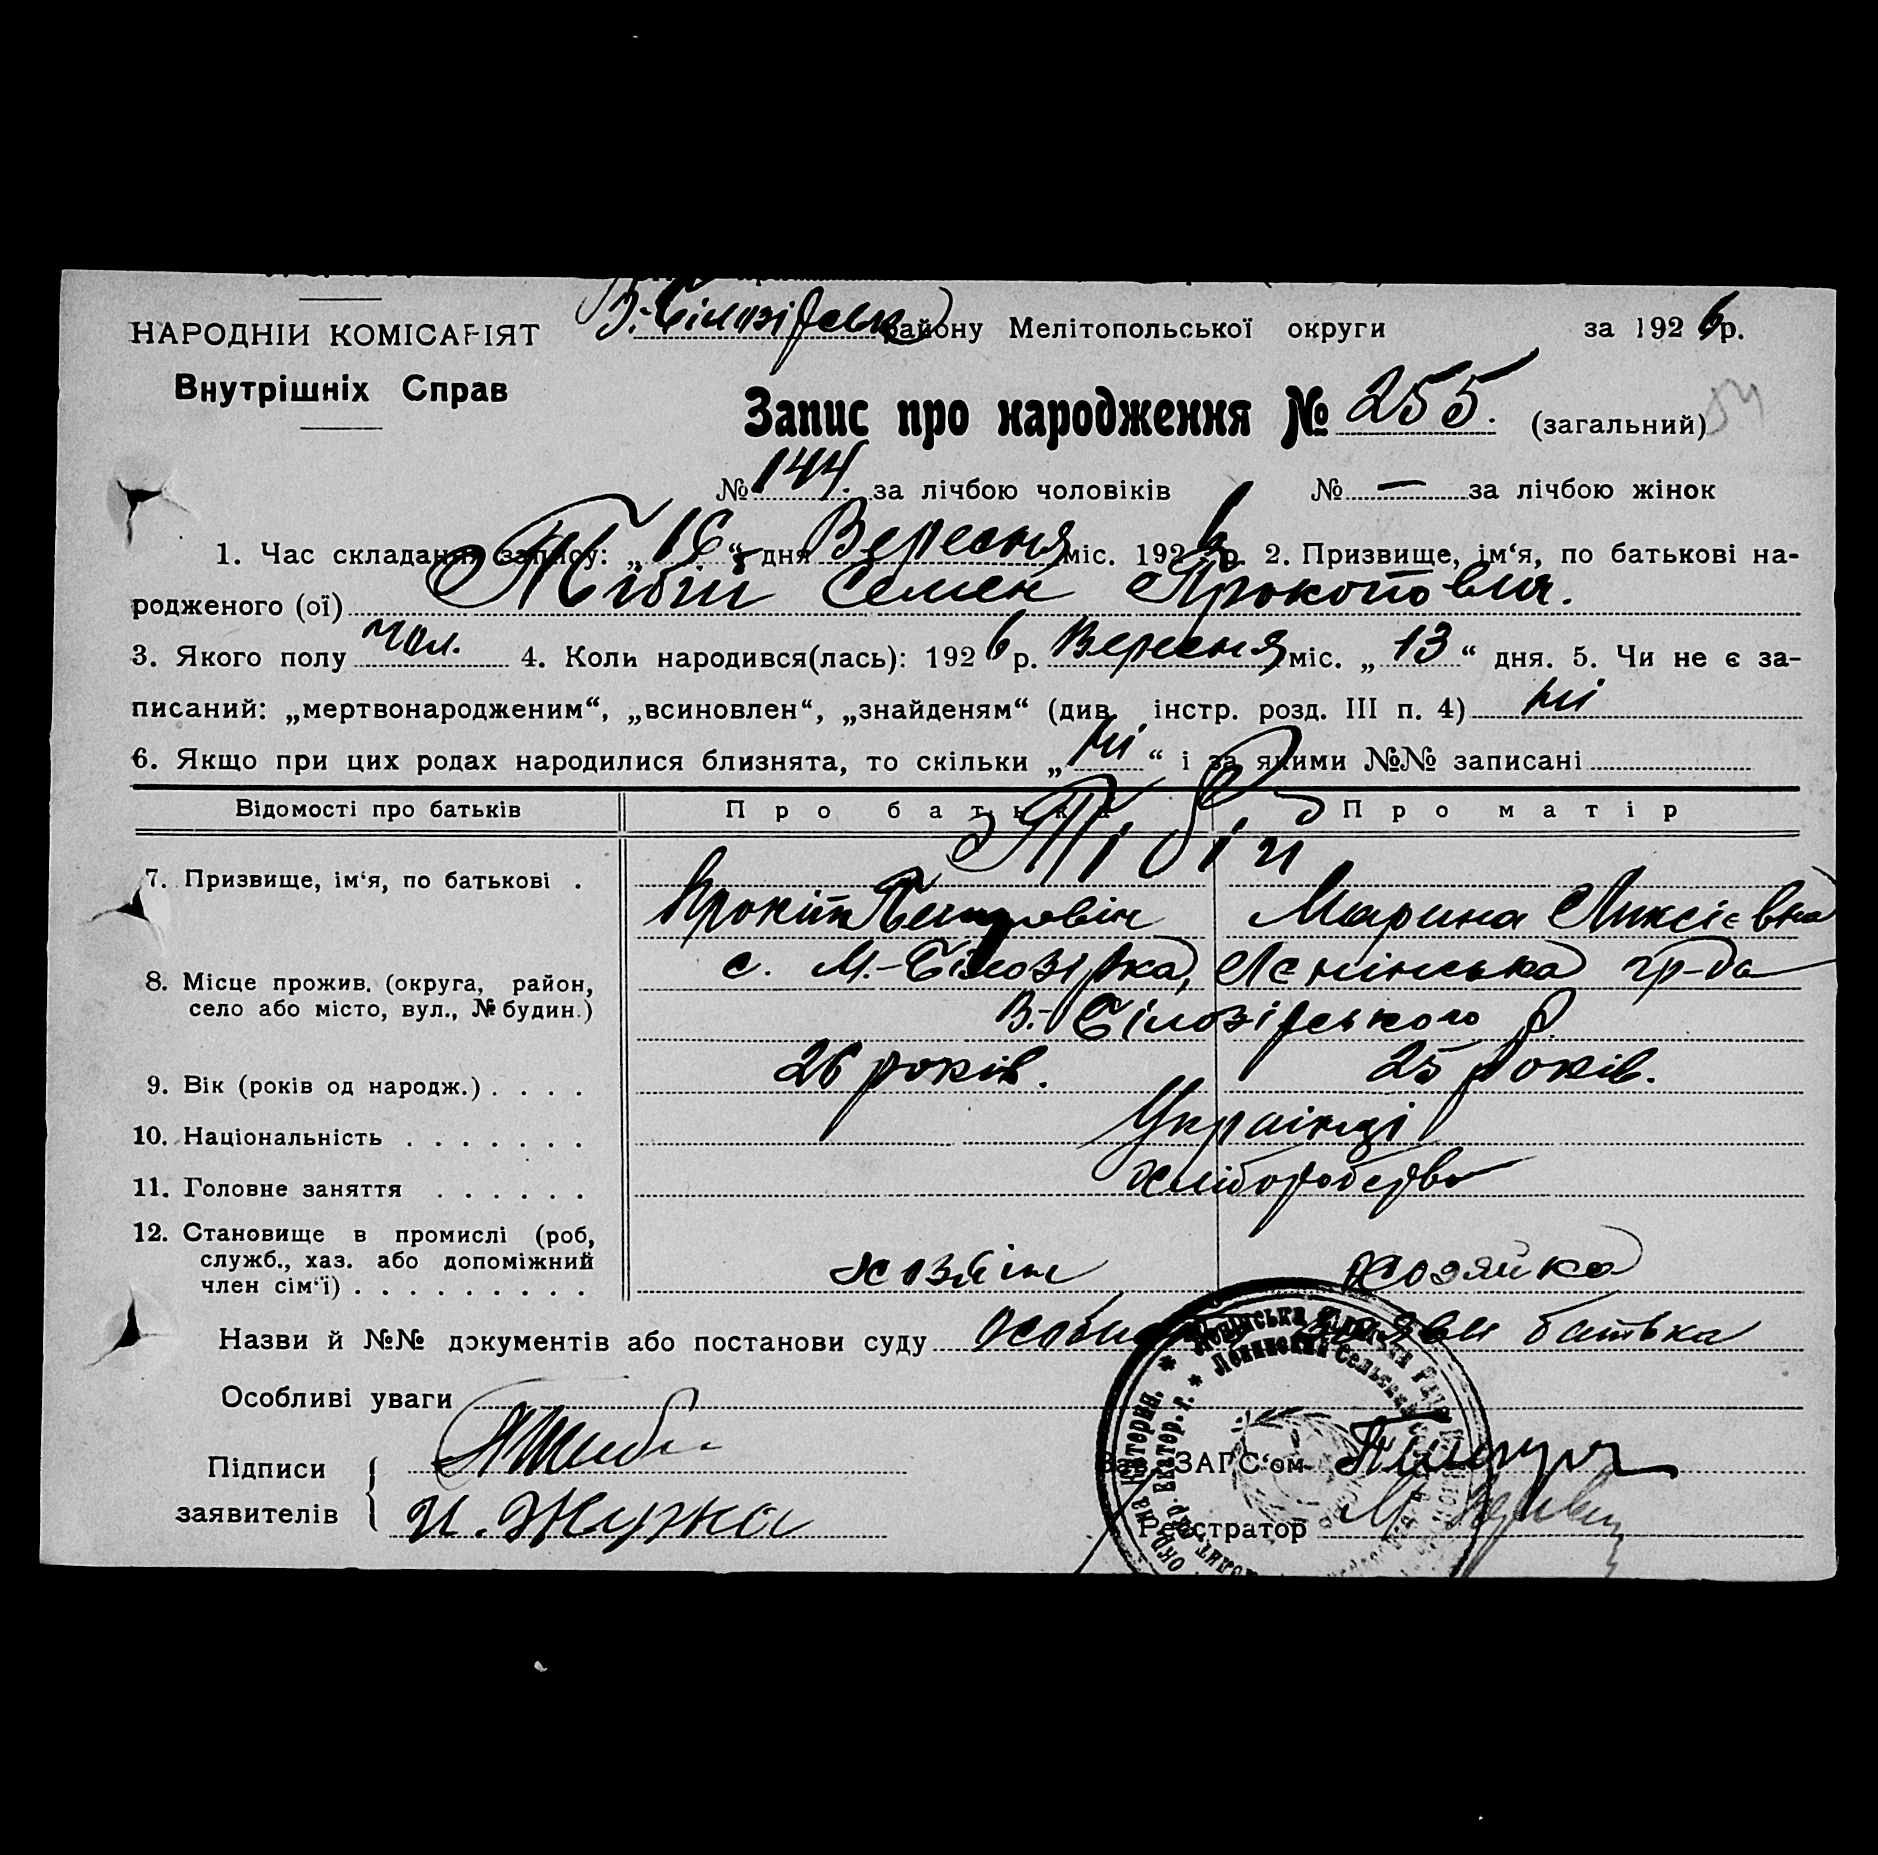 В.-Білозірськ району Мелітопольської округи за 1926 р.
НАРОДНІЙ КОМІСАРІЯТ
Внутрішніх Справ
Запис про народження № 255. (загальний)
№ 144. за лічбою чоловіків № — за лічбою жінок
1. Час складання запису: „16“ дня Вересня міс. 1926 р. 2. Призвище, ім‘я, по батькові на-
родженого (ої) Тібій Семен Прокопович.
3. Якого полу чол. 4. Коли народився(лась): 1926 р. Вересня міс. „13“ дня. 5. Чи не є за-
писаний: „мертвонародженим“, „всиновлен“, „знайденям“ (див. інстр. розд. III п. 4) ні
6. Якщо при цих родах народилися близнята, то скільки „ні“ і за якими №№ записані
Відомості про батьків Про батька Про матір
7. Призвище, ім‘я, по батькові . Тібій
Прокіп Петровіч Марина Ликсієвна
8. Місце прожив. (округа, район, с. М.-Білозірка, Лєнінська гр-да
село або місто, вул., № будин.) В.-Білозірського р.
9. Вік (років од народж.) . . . . 26 років. 25 років.
10. Національність . . . . . . . Українці
11. Головне заняття . . . . . . хліборобство
12. Становище в промислі (роб,
служб., хаз. або допоміжний
член сім‘ї) . . . . . . . . . хозяін хозяйка
Назви й №№ документів або постанови суду заяви батька
Особливі уваги
Підписи
заявителів И. Жужа
Зав. ЗАГС‘ом
Реєстратор